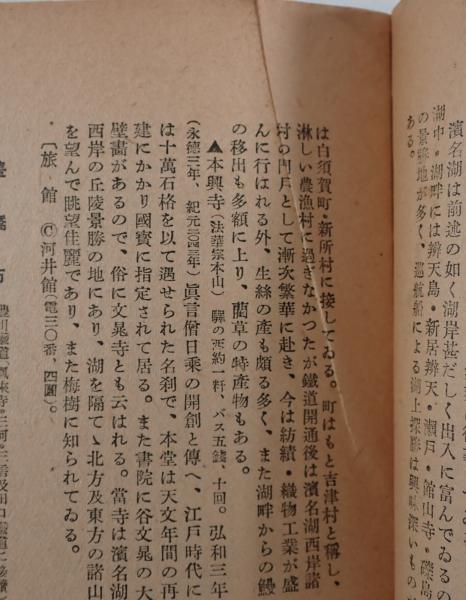 濱名湖は前述の如く湖岸甚だしく出入に富んでゐるの
湖中・湖畔には辨天島・新居辨天・瀬戸・館山寺・礫島
の景勝地が多く、巡航船による湖上探勝は興味深いもの
ある。
は白須賀町・新所村に接してゐる。町はもと吉津村と稱し、
淋しい農漁村に過ぎなかつたが鐵道開通後は濱名湖西岸諸
村の門戸として漸次繁華に赴き、今は紡績・織物工業が盛
んに行はれる外、生絲の產も頗る多く、また湖畔からの鰻
の移出も多額に上り、藺草の特產物もある。
▲本興寺(法華宗本山) 驛の西約一粁、バス五錢、十回。弘和三年
(永德三年、紀元二〇四三年)眞言僧日乘の開創と傳へ、江戸時代に
は十萬石格を以て遇せられた名刹で、本堂は天文年間の再
建にかかり國寳に指定されて居る。また書院に谷文晁の大
壁畵があるので、俗に文晁寺とも云はれる。當寺は濱名湖
西岸の丘陵景勝の地にあり、湖を隔てゝ北方及東方の諸山
を望んで眺望佳麗であり、また梅樹に知られてゐる。
〔旅館 Ⓒ河井館(電三〇番、四圓)。
橋 市